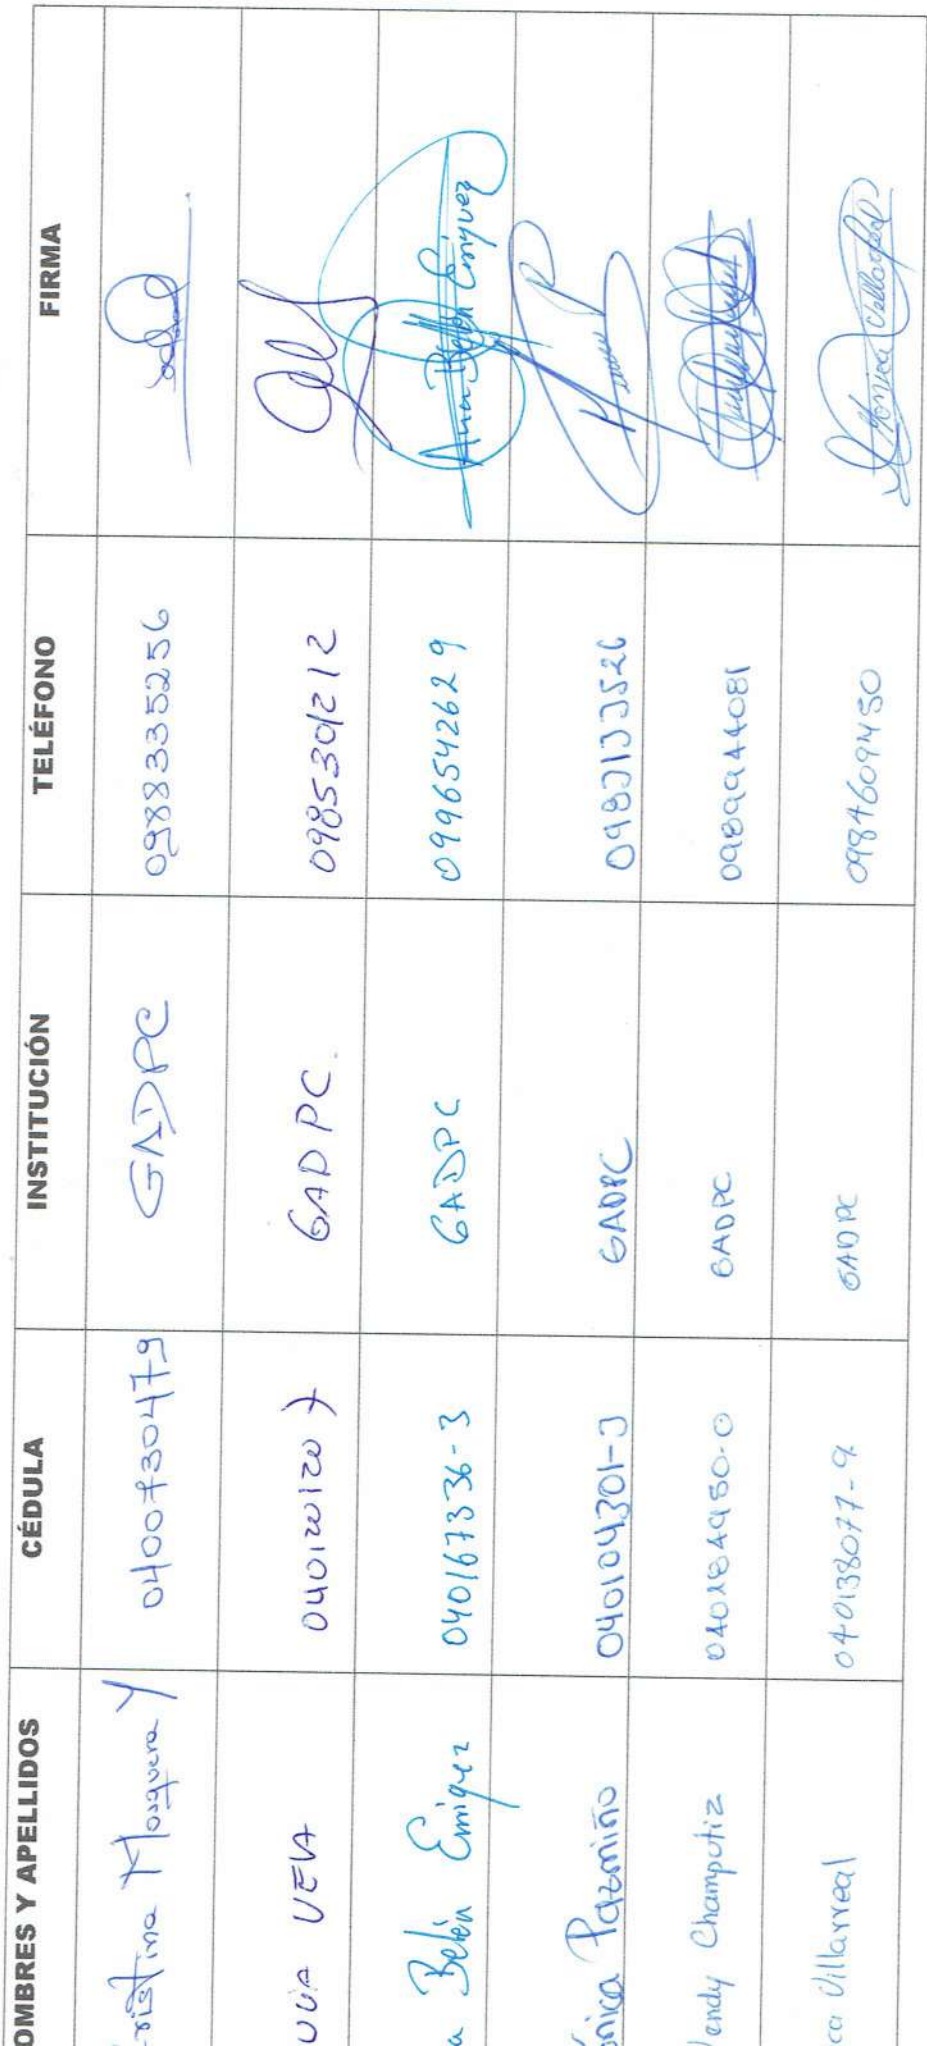 OMBRES Y APELLIDOS CÉDULA INSTITUCIÓN TELÉFONO FIRMA
ristina Mosquera Y 0400730479 GADPC 0988335256
VEVA GADPC. 0985301212
a Belén Enríquez 040167336-3 GADPC 0996542629 Ana Belén Enríquez
ónica Pazmiño 040104301-3 GADPC 0983133526
endy Champutiz 040184950-0 GADPC 0989944081
ca Villarreal 040138077-9 GADPC 0984609450 Mónica Villarreal